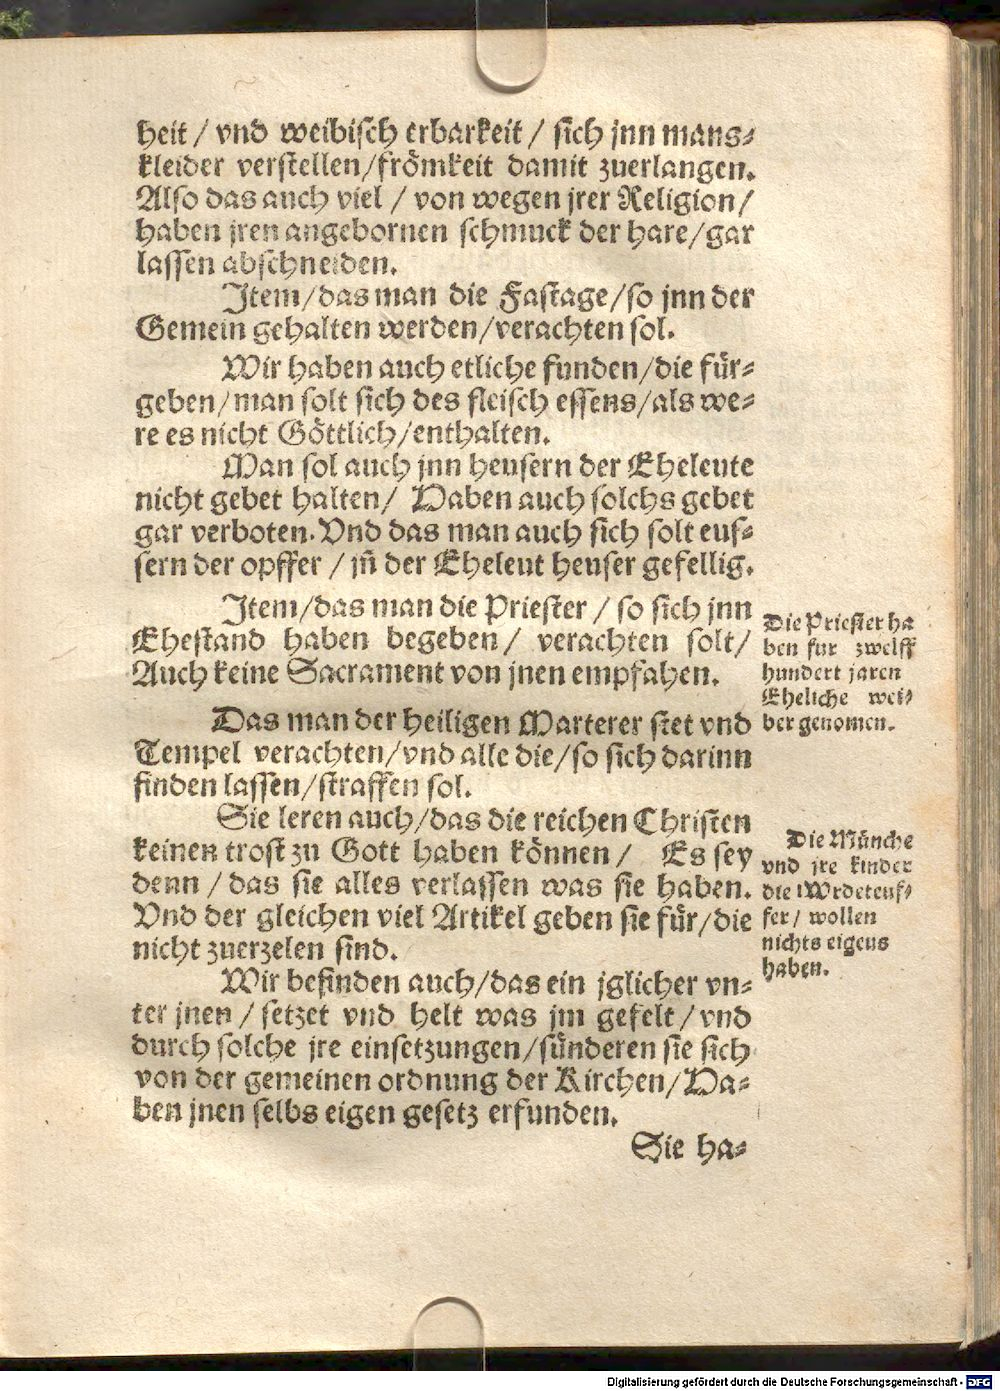 heit / vnd weibisch erbarkeit / sich jnn mans⸗
kleider verstellen/frömkeit damit zuerlangen.
Also das auch viel / von wegen jrer Religion/
haben jren angebornen schmuck der hare/gar
lassen abschneiden.
Item/das man die Fastage/so jnn der
Gemein gehalten werden/verachten sol.
Wir haben auch etliche funden/die für⸗
geben/man solt sich des fleisch essens/als we⸗
re es nicht Göttlich/enthalten.
Man sol auch jnn heusern der Eheleute
nicht gebet halten/ Haben auch solchs gebet
gar verboten. Vnd das man auch sich solt eus⸗
sern der opffer / jñ der Eheleut heuser gefellig.
Item/das man die Priester / so sich jnn
Ehestand haben begeben/ verachten solt/
Auch keine Sacrament von jnen empfahen.
Die Priester ha
ben fur zwelff
hundert jaren
Eheliche wei⸗
ber genomen.
Das man der heiligen Marterer stet vnd
Tempel verachten/vnd alle die/so sich darinn
finden lassen/straffen sol.
Sie leren auch/das die reichen Christen
keinen trost zu Gott haben können/ Es sey
denn / das sie alles verlassen was sie haben.
Vnd der gleichen viel Artikel geben sie für/die
nicht zuerzelen sind.
Die Münche
vnd jre kinder
die Widerteuf⸗
fer/ wollen
nichts eigens
haben.
Wir befinden auch/das ein jglicher vn⸗
ter jnen / setzet vnd helt was jm gefelt/vnd
durch solche jre einsetzungen/sünderen sie sich
von der gemeinen ordnung der Kirchen/Ha⸗
ben jnen selbs eigen gesetz erfunden.
Sie ha⸗
Digitalisierung gefördert durch die Deutsche Forschungsgemeinschaft - DFG